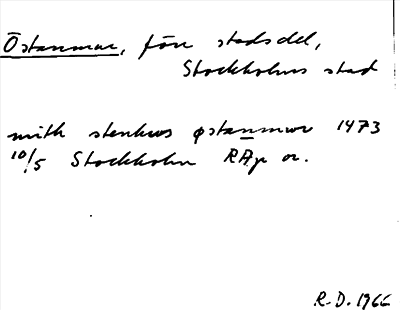 Östanmur, förr stadsdel,
Stockholms stad
mith stenhws østanmwr 1473
10/5 Stockholm RAp or.
R.D. 1966